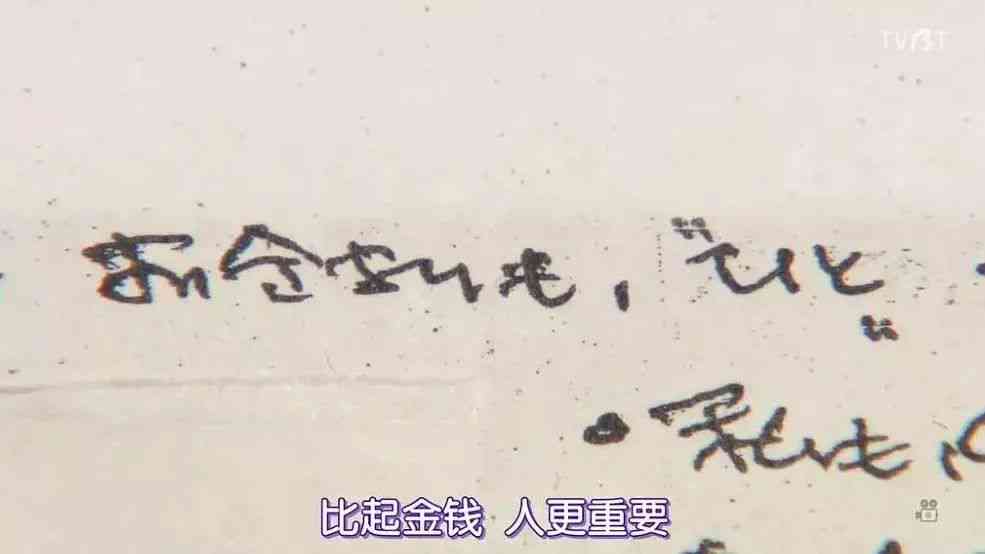 TVBT
お金よりも、〝ひと〟
比起金钱 人更重要